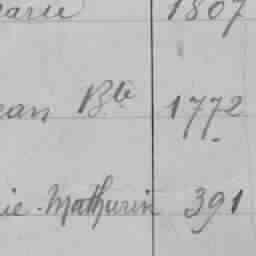 arie 1807
ean Bte 1772
ie-Mathurin 391